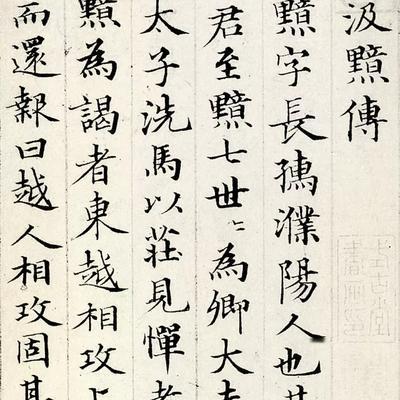 汲黯傳
黯字長孺濮陽人也其
君至黯七世〻為卿大夫
太子洗馬以莊見憚孝
黯為謁者東越相攻上
而還報曰越人相攻固其